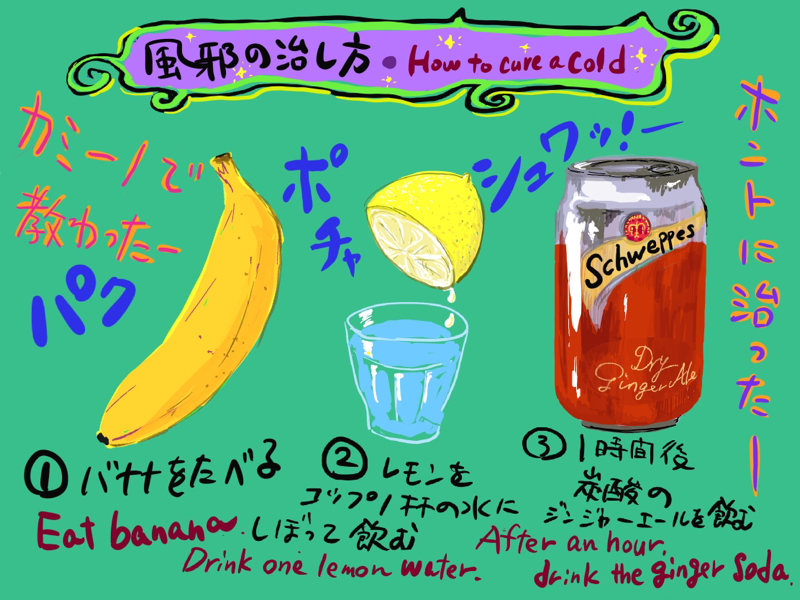 風邪の治し方・How to cure a cold
カミーノで
教わったー
パク
ポチャ
シュワッ!ー
ホントに治ったー
Schweppes
Dry
Ginger Ale
①バナナをたべる
Eat banana.
②レモンを
コップ1杯の水に
しぼって飲む
Drink one lemon water.
③1時間後
炭酸の
ジンジャーエールを飲む
After an hour,
drink the ginger soda.